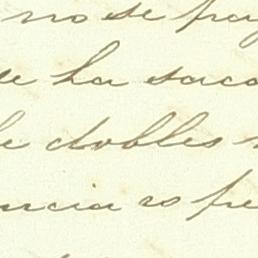 no se pag
se ha saca
de dobles
ncia es fre